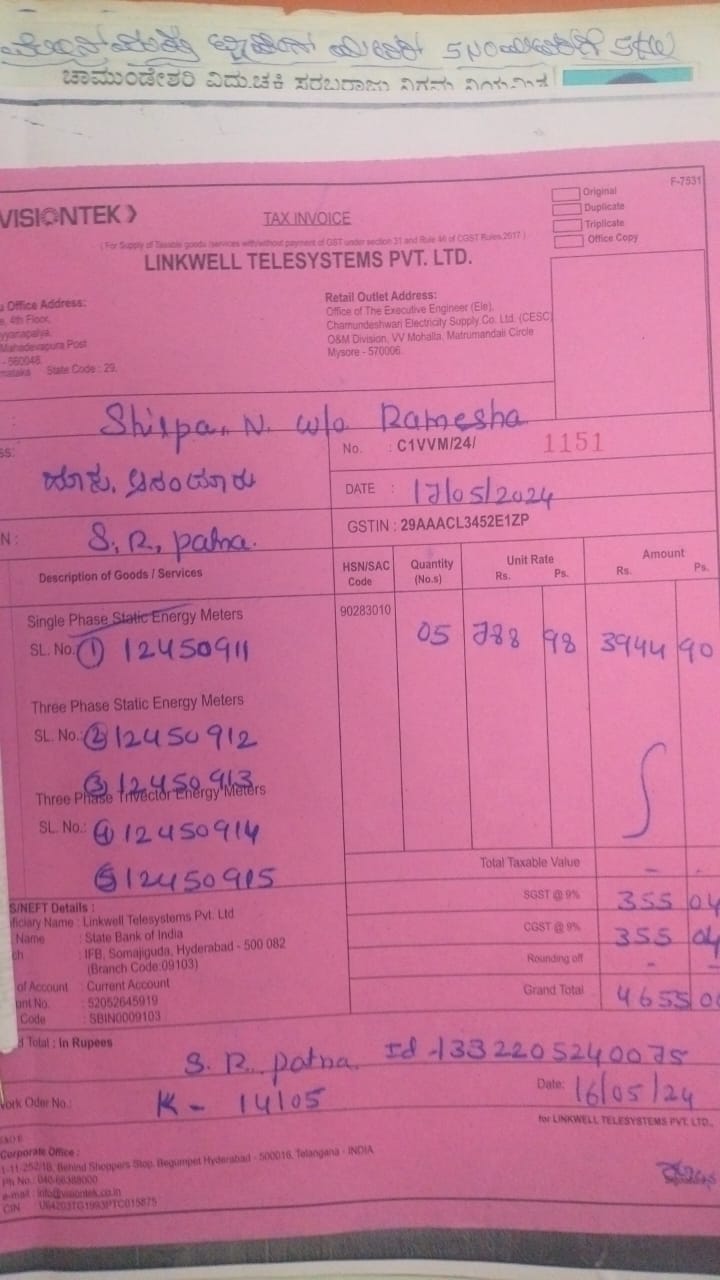 ಚಾಮುಂಡೇಶ್ವರಿ ವಿದ್ಯುಚ್ಛಕ್ತಿ ಸರಬರಾಜು ನಿಗಮ ನಿಯಮಿತ
F-7531
VISIONTEK
TAX INVOICE
Original
Duplicate
Triplicate
Office Copy
( For Supply of Taxable goods /services with/without payment of GST under section 31 and Rule 46 of CGST Rules.2017 )
LINKWELL TELESYSTEMS PVT. LTD.
Office Address:
4th Floor,
Mahadevapura Post
- 560048.
State Code : 29.
Retail Outlet Address:
Office of The Executive Engineer (Ele),
Chamundeshwari Electricity Supply Co. Ltd. (CESC)
O&M Division, VV Mohalla, Matrumandali Circle
Mysore - 570006.
Shilpa. N. w/o Ramesha
No. : C1VVM/24/ 1151
DATE : 17/05/2024
GSTIN : 29AAACL3452E1ZP
S. R. patna.
Description of Goods / Services HSN/SAC Code Quantity (No.s) Unit Rate Rs. Ps. Amount Rs. Ps.
Single Phase Static Energy Meters 90283010
SL. No. ① 12450911 05 788 98 3944 90
Three Phase Static Energy Meters
SL. No.: ② 12450912
③ 12450913
Three Phase Trivector Energy Meters
SL. No.: ④ 12450914
⑤ 12450915
Total Taxable Value - -
SGST @ 9% 355 04
CGST @ 9% 355 04
Rounding off - -
Grand Total 4655 00
S/NEFT Details :
ficiary Name : Linkwell Telesystems Pvt. Ltd
Name : State Bank of India
ch : IFB, Somajiguda, Hyderabad - 500 082
(Branch Code:09103)
of Account : Current Account
unt No. : 52052645919
Code : SBIN0009103
d Total : In Rupees
S. R. patna. Id -1332205240075
ork Oder No.: K - 14/05 Date: 16/05/24
for LINKWELL TELESYSTEMS PVT. LTD.,
Corporate Office :
1-11-252/1B, Behind Shoppers Stop, Begumpet Hyderabad - 500016, Telangana - INDIA
Ph No.: 040-66388000
e-mail : info@visiontek.co.in
CIN : U64203TG1993PTC015875